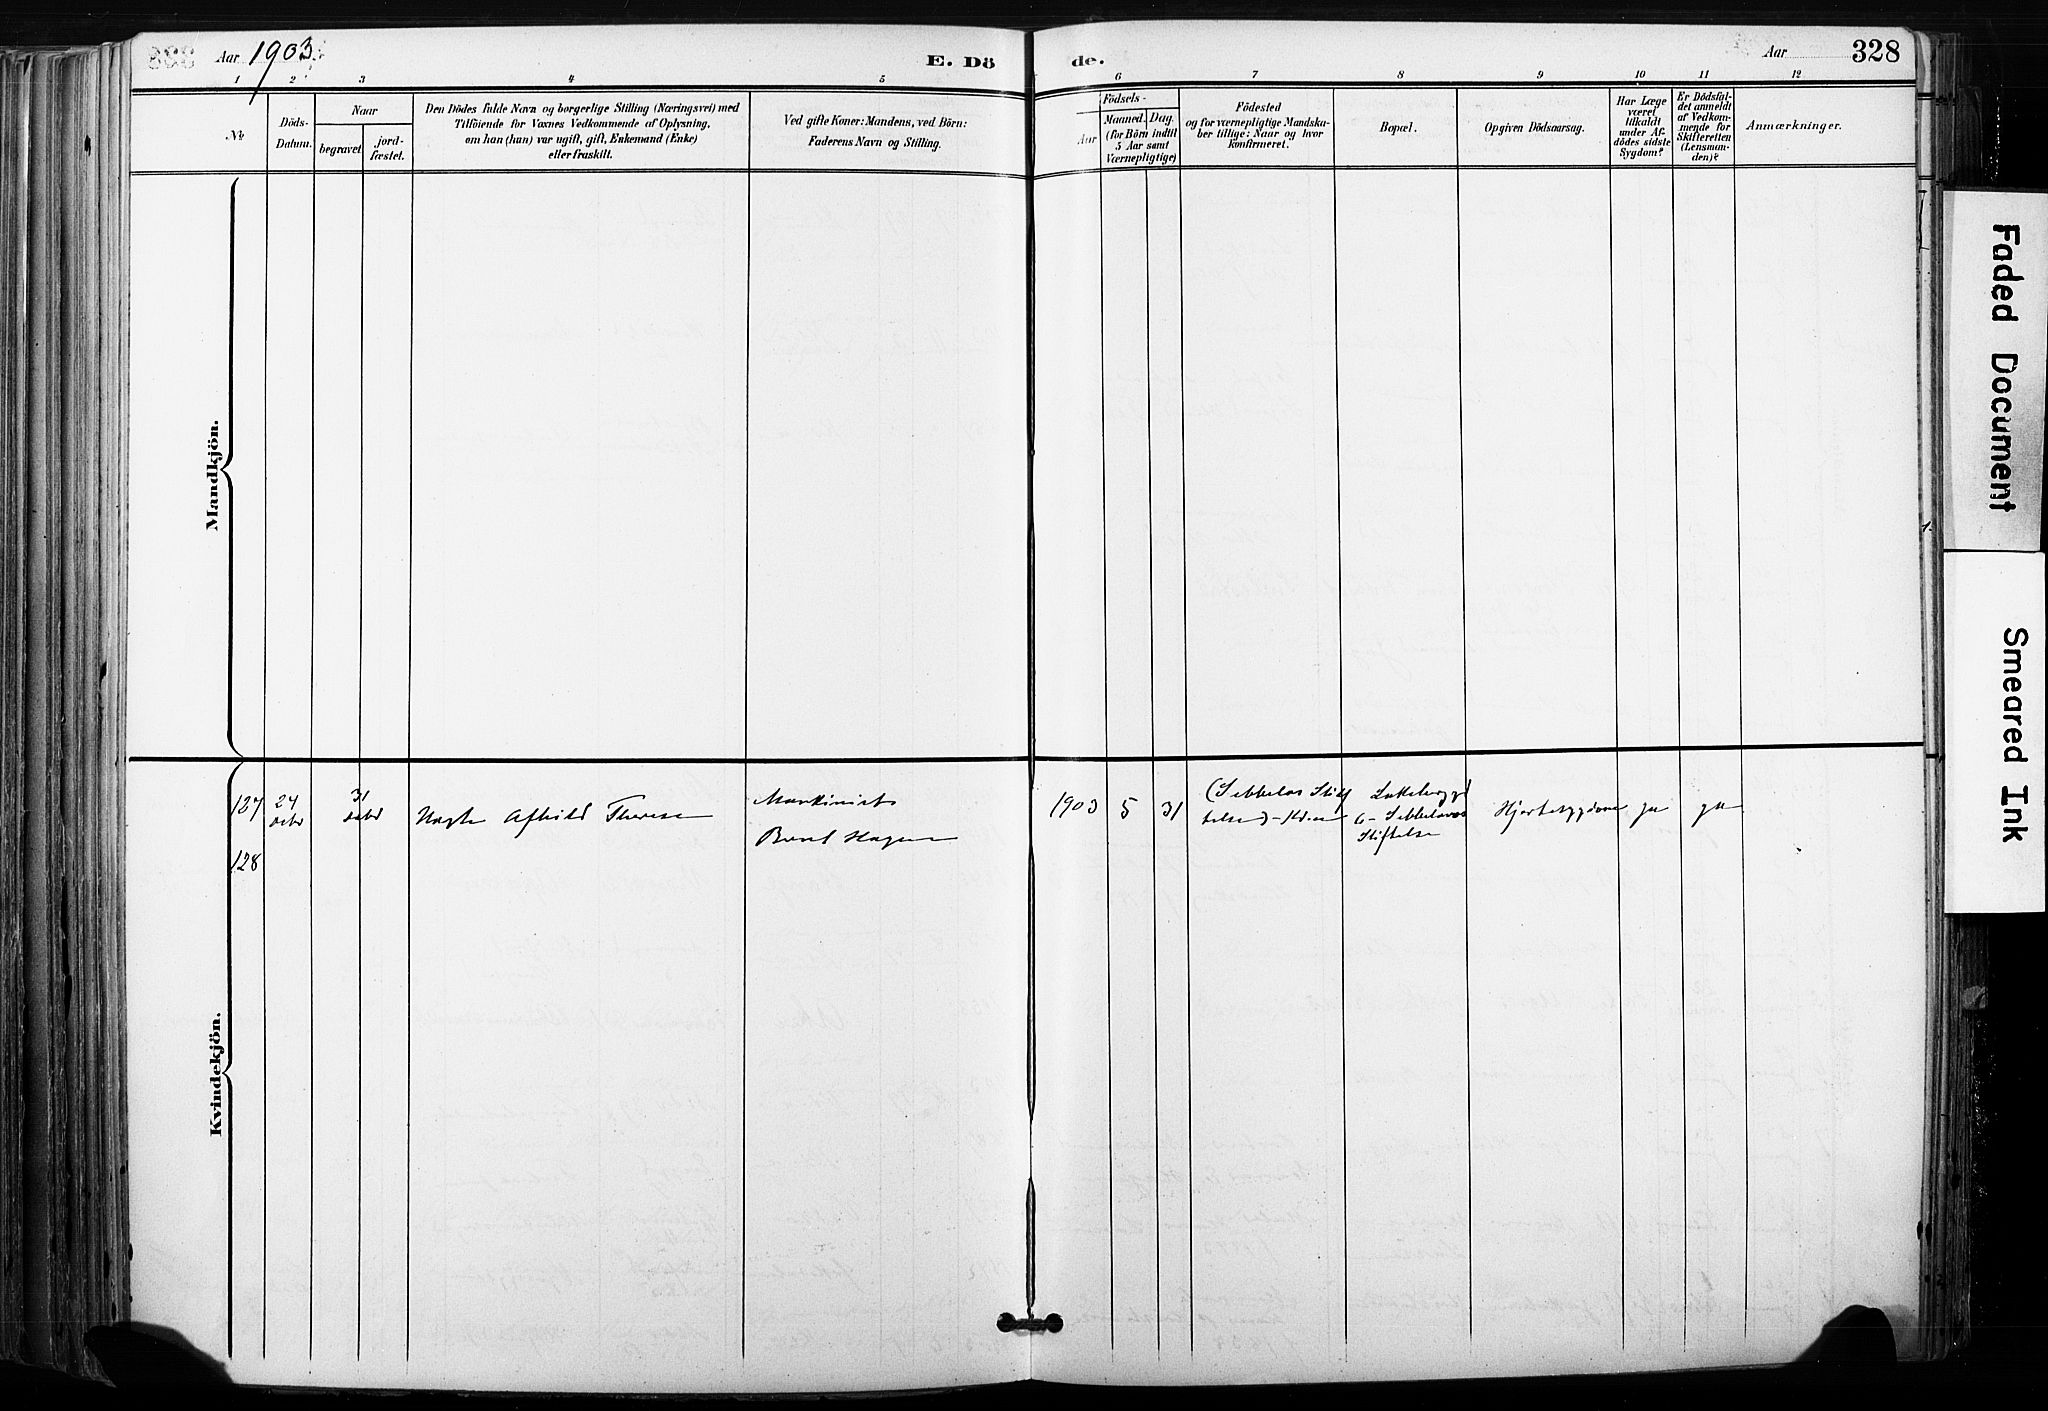 Aar 1903.
E. Dö
de.
Aar
328
1 2 3 4 5 6 7 8 9 10 11 12
№
Döds-
Datum.
Naar
begravet
jord-
fæstet.
Den Dödes fulde Navn og borgerlige Stilling (Næringsvei) med
Tilföiende for Voxnes Vedkommende af Oplysning,
om han (hun) var ugift, gift, Enkemand (Enke)
eller fraskilt.
Ved gifte Koner: Mandens, ved Börn:
Faderens Navn og Stilling.
Födsels-
Aar
Maaned.
Dag.
(for Börn indtil
5 Aar samt
Værnepligtige)
Födested
og for værnepligtige Mandska-
ber tillige: Naar og hvor
konfirmeret.
Bopæl.
Opgiven Dödsaarsag.
Har Læge
været
tilkaldt
under Af-
dödes sidste
Sygdom?
Er Dödsfal-
det anmeldt
af Vedkom-
mende for
Skifteretten
(Lensman-
den)?
Anmærkninger.
Mandkjön.
Kvindekjön.
127
24
31
Therese
Maskinist
Bernt Hagen
1903 5 31
Stiftelse
Hjertesygdom
ja
ja
128
Faded Document
Smeared Ink